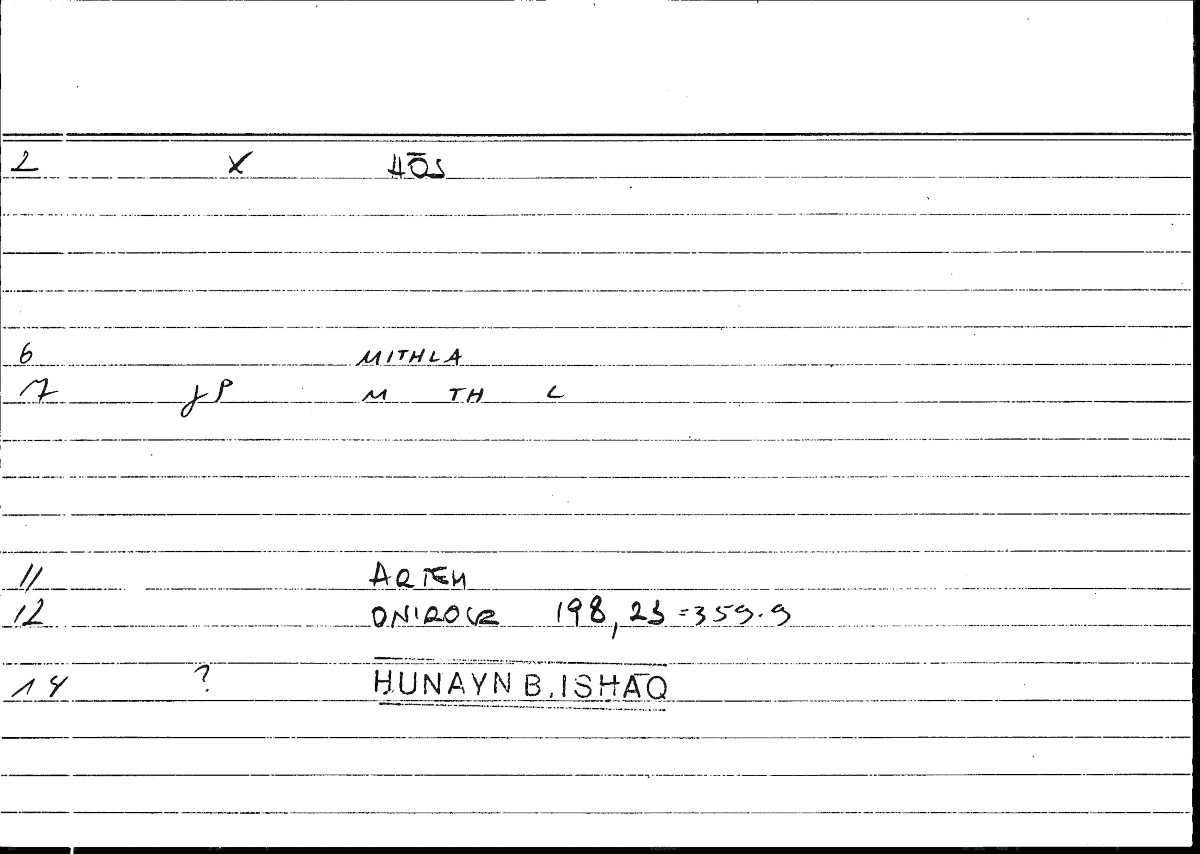 2 X HŌS
6 MITHLA
7 JP M TH L
11 ARTEM
12 ONIROCR 198,23=359.9
14 ? ḤUNAYN B. ISḤĀQ